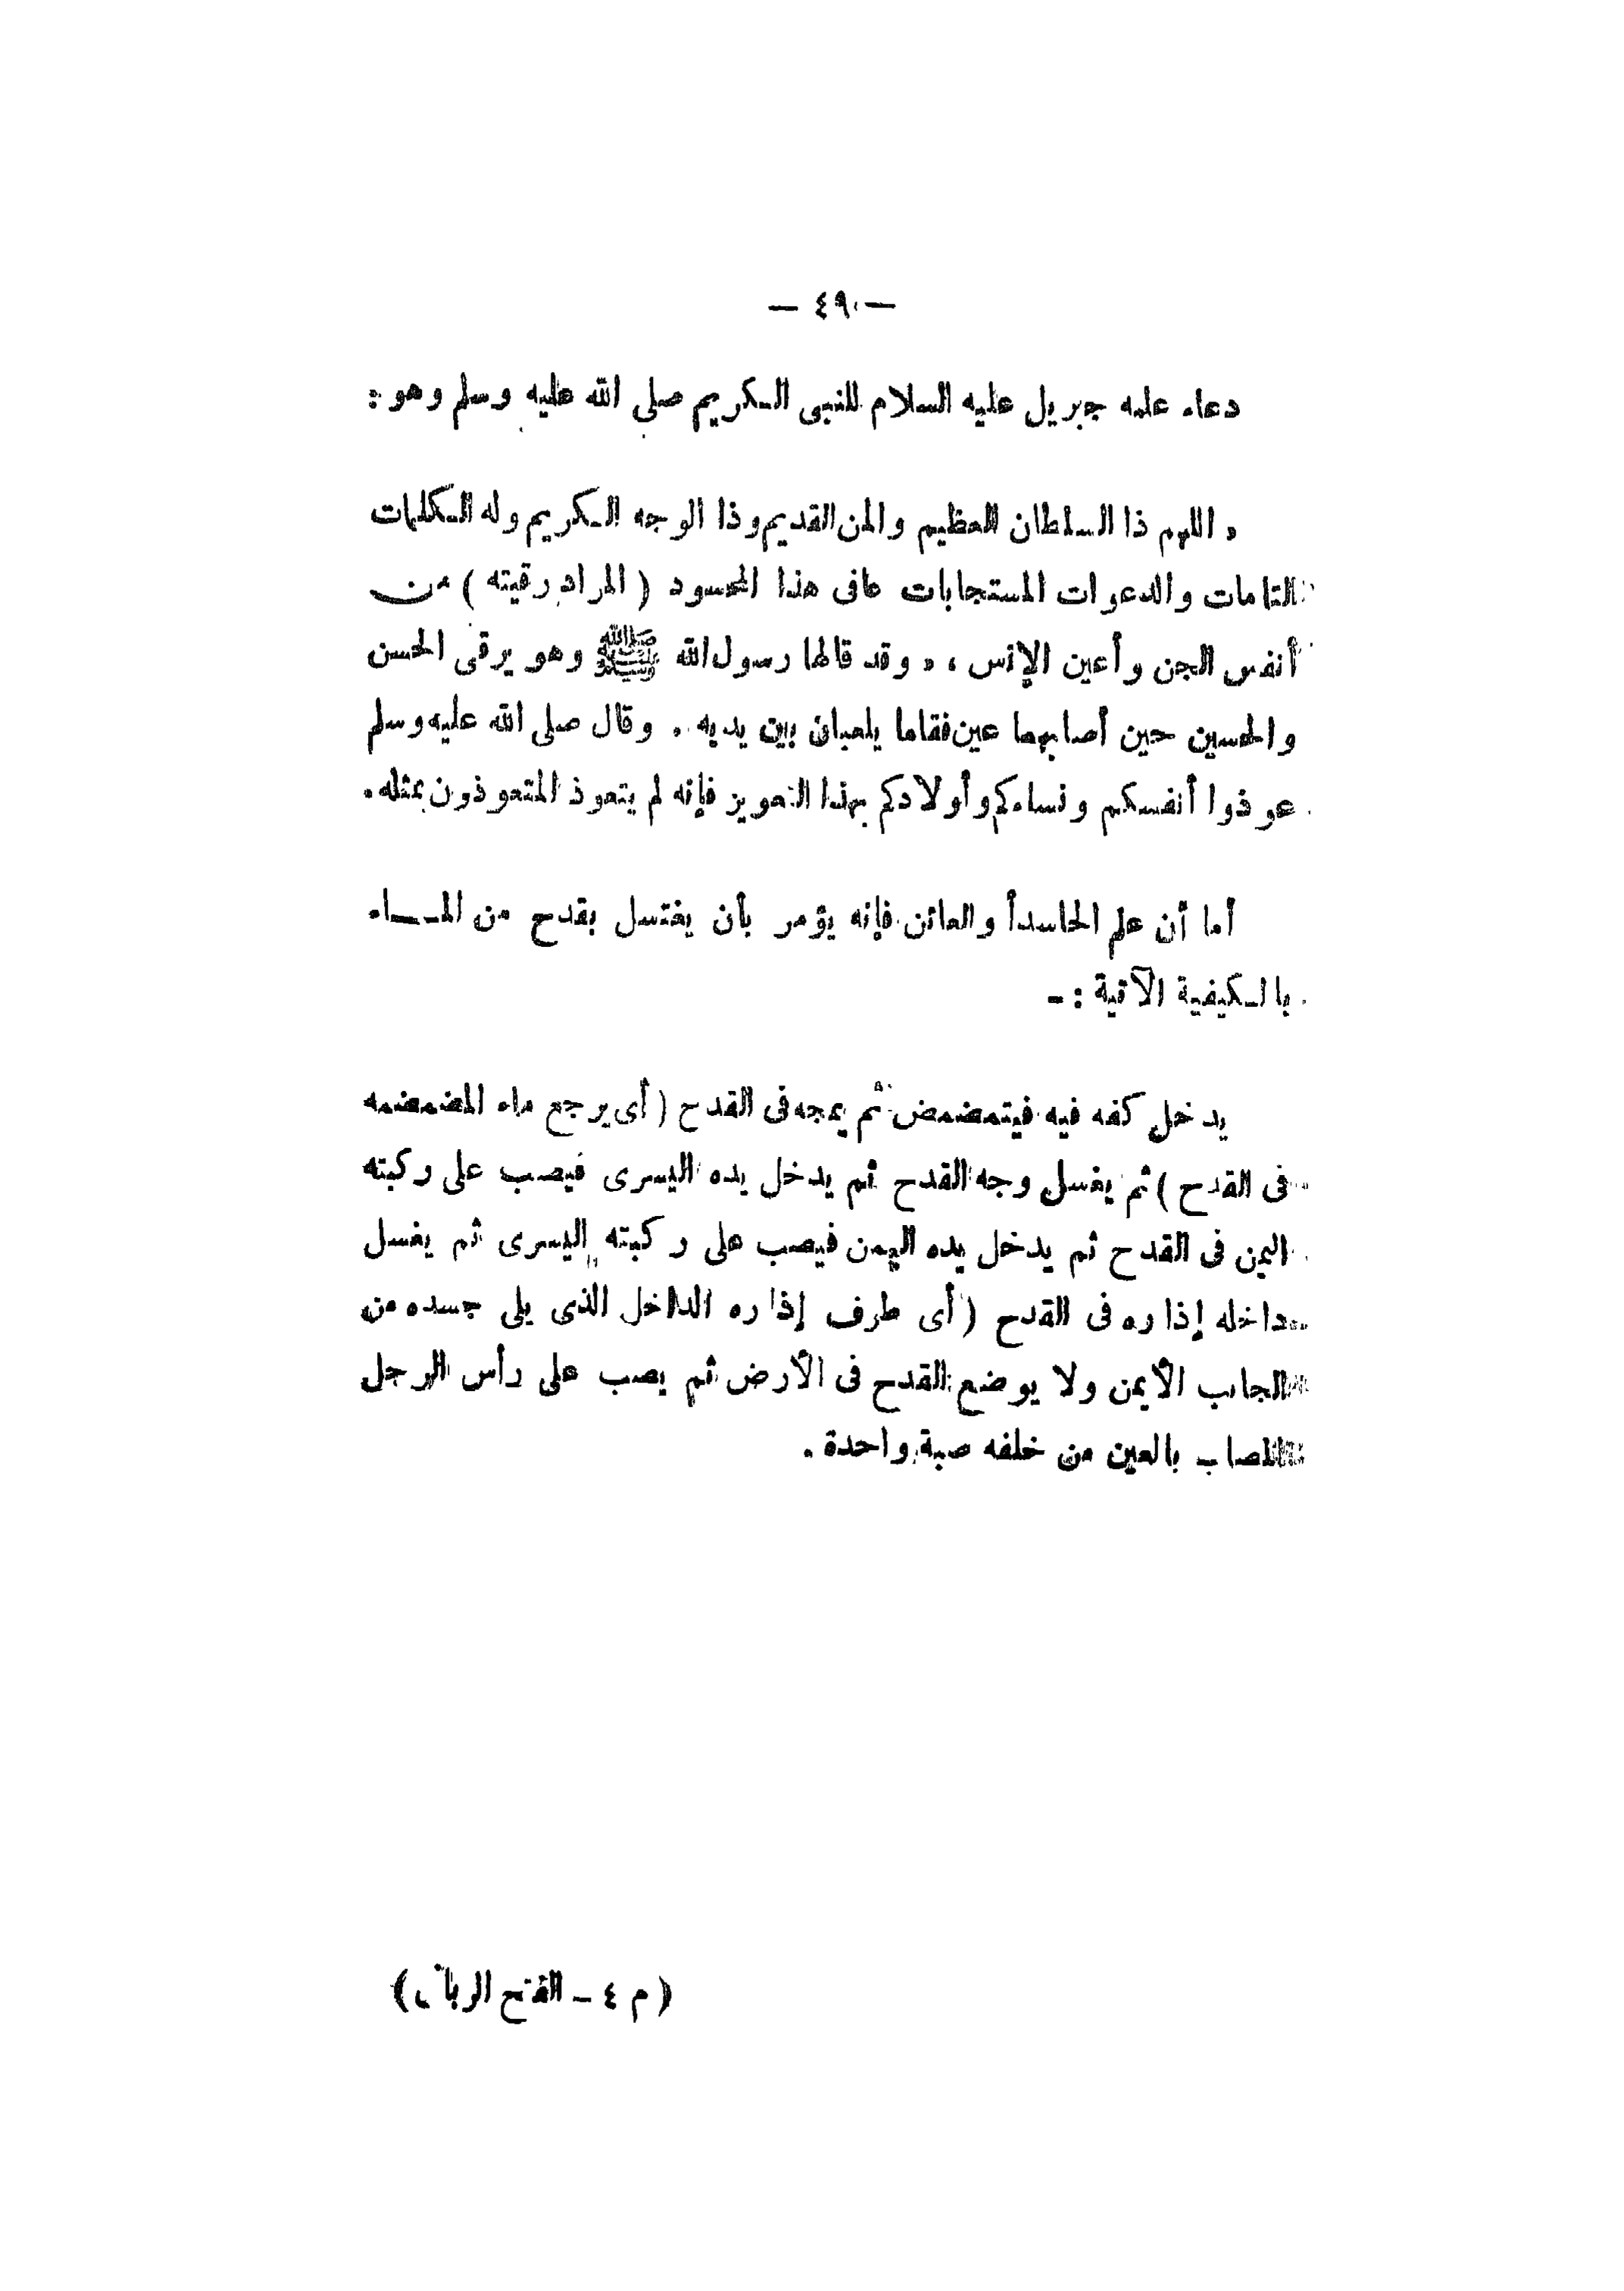 — ٤٩ —
دعاء علمه جبريل عليه السلام للنبى الكريم صلى الله عليه وسلم وهو :
« اللهم ذا السلطان العظيم والمن القديم وذا الوجه الكريم وله الكلمات
التامات والدعوات المستجابات عافى هذا المحسود ( المراد رقيته ) من
أنفس الجن وأعين الإنس ، » وقد قالها رسول الله ﷺ وهو يرقى الحسن
والحسين حين أصابهما عين فقاما يلعبان بين يديه . وقال صلى الله عليه وسلم
عوذوا أنفسكم ونساءكم وأولادكم بهذا التعويز فإنه لم يتعوذ المتعوذون بمثله .
أما أن علم الحاسد أ والعائن فإنه يؤمر بأن يغتسل بقدح من المــاء
بالكيفية الآتية : -
يدخل كفه فيه فيتمضمض ثم يمجه فى القدح ( أى يرجع ماء المضمضمه
فى القدح ) ثم يغسل وجه القدح ثم يدخل يده اليسرى فيصب على ركبته
اليمن فى القدح ثم يدخل يده اليمن فيصب على ركبته اليسرى ثم يغسل
داخله إذاره فى القدح ( أى طرف إذاره الداخل الذى يلى جسده من
الجانب الأيمن ولا يوضع القدح فى الأرض ثم يصب على رأس الرجل
المصاب بالعين من خلفه صبة واحدة .
( م ٤ – الفتح الربانى )